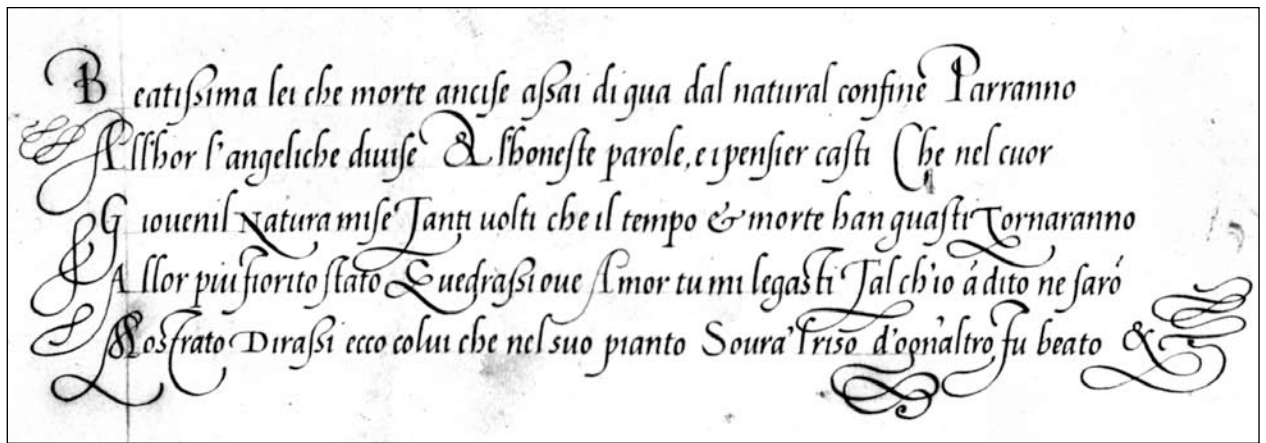 Beatissima lei che morte ancise assai di qua dal natural confine Parranno
Allhor l'angeliche diuise & lhoneste parole, e i pensier casti Che nel cuor
Giouenil Natura mise Tanti uolti che il tempo & morte han guasti Tornaranno
Allor piu fiorito stato E uedrassi oue Amor tu mi legasti Tal ch'io á dito ne saró
Mostrato Dirassi ecco colui che nel suo pianto Soura'l riso d'ogn'altro fu beato &